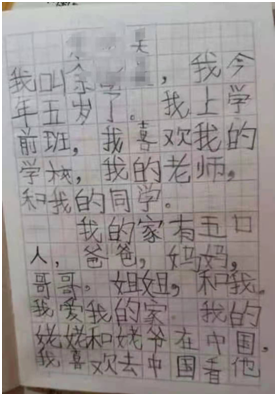 我叫余，我今
年五岁了。我上学
前班，我喜欢我的
学校，我的老师，
和我的同学。
我的家有五口
人，爸爸，妈妈，
哥哥。姐姐，和我。
我爱我的家。我的
姥姥和姥爷在中国，
我喜欢去中国看他